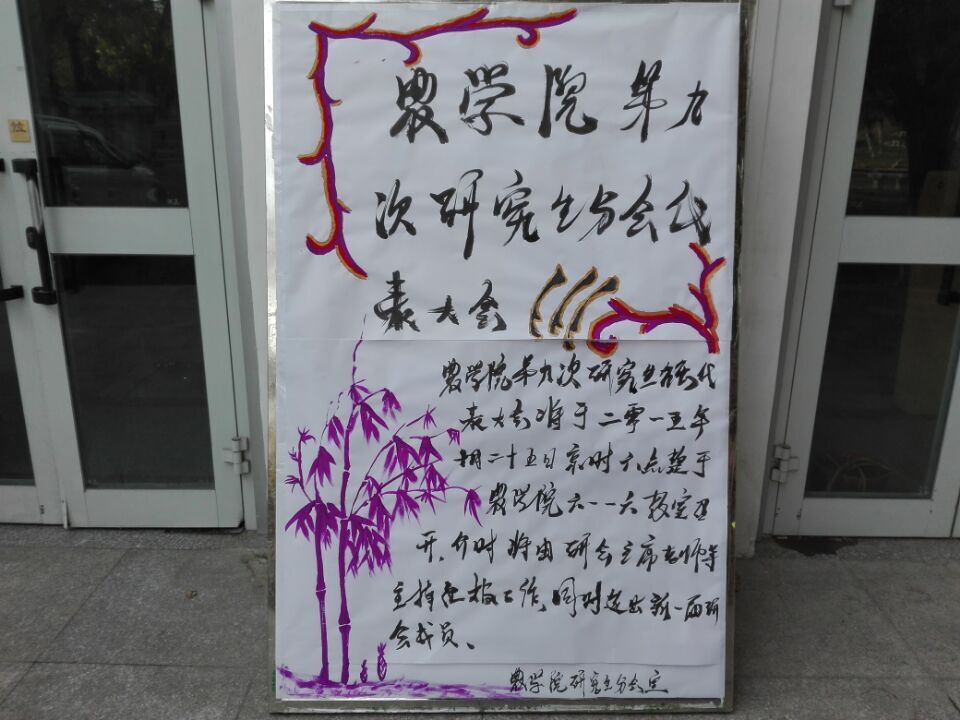 农学院第九
次研究生分会代
表大会
农学院第九次研究生分会代
表大会将于二零一五年
十月二十五日京时六点整于
农学院六一一六教室召
开，介时将由研会主席老师等
主持工作，同时选出新一届研
会成员、
农学院研究生分会宣
位